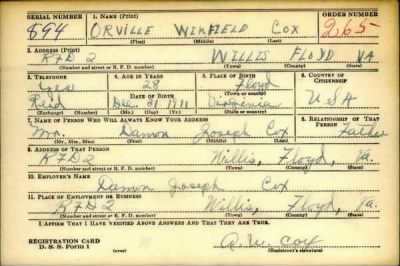 SERIAL NUMBER 1. NAME (Print) ORDER NUMBER
594 ORVILLE WINFIELD COX 265
(First) (Middle) (Last)
2. ADDRESS (Print)
RFD 2 WILLIS FLOYD VA
(Number and street or R. F. D. number) (Town) (County) (State)
3. TELEPHONE 4. AGE IN YEARS 5. PLACE OF BIRTH 6. COUNTRY OF CITIZENSHIP
28 Floyd
DATE OF BIRTH (Town or county)
Reid Dec. 31 1911 Virginia USA
(Exchange) (Number) (Mo.) (Day) (Yr.) (State or country)
7. NAME OF PERSON WHO WILL ALWAYS KNOW YOUR ADDRESS 8. RELATIONSHIP OF THAT PERSON
Mr. Damon Joseph Cox Father
(Mr., Mrs., Miss) (First) (Middle) (Last)
9. ADDRESS OF THAT PERSON
RFD 2 Willis, Floyd, Va.
(Number and street or R. F. D. number) (Town) (County) (State)
10. EMPLOYER'S NAME
Damon Joseph Cox
11. PLACE OF EMPLOYMENT OR BUSINESS
RFD 2 Willis, Floyd, Va.
(Number and street or R. F. D. number) (Town) (County) (State)
I AFFIRM THAT I HAVE VERIFIED ABOVE ANSWERS AND THAT THEY ARE TRUE.
REGISTRATION CARD
D. S. S. Form 1 O. W. Cox
(Registrant's signature)